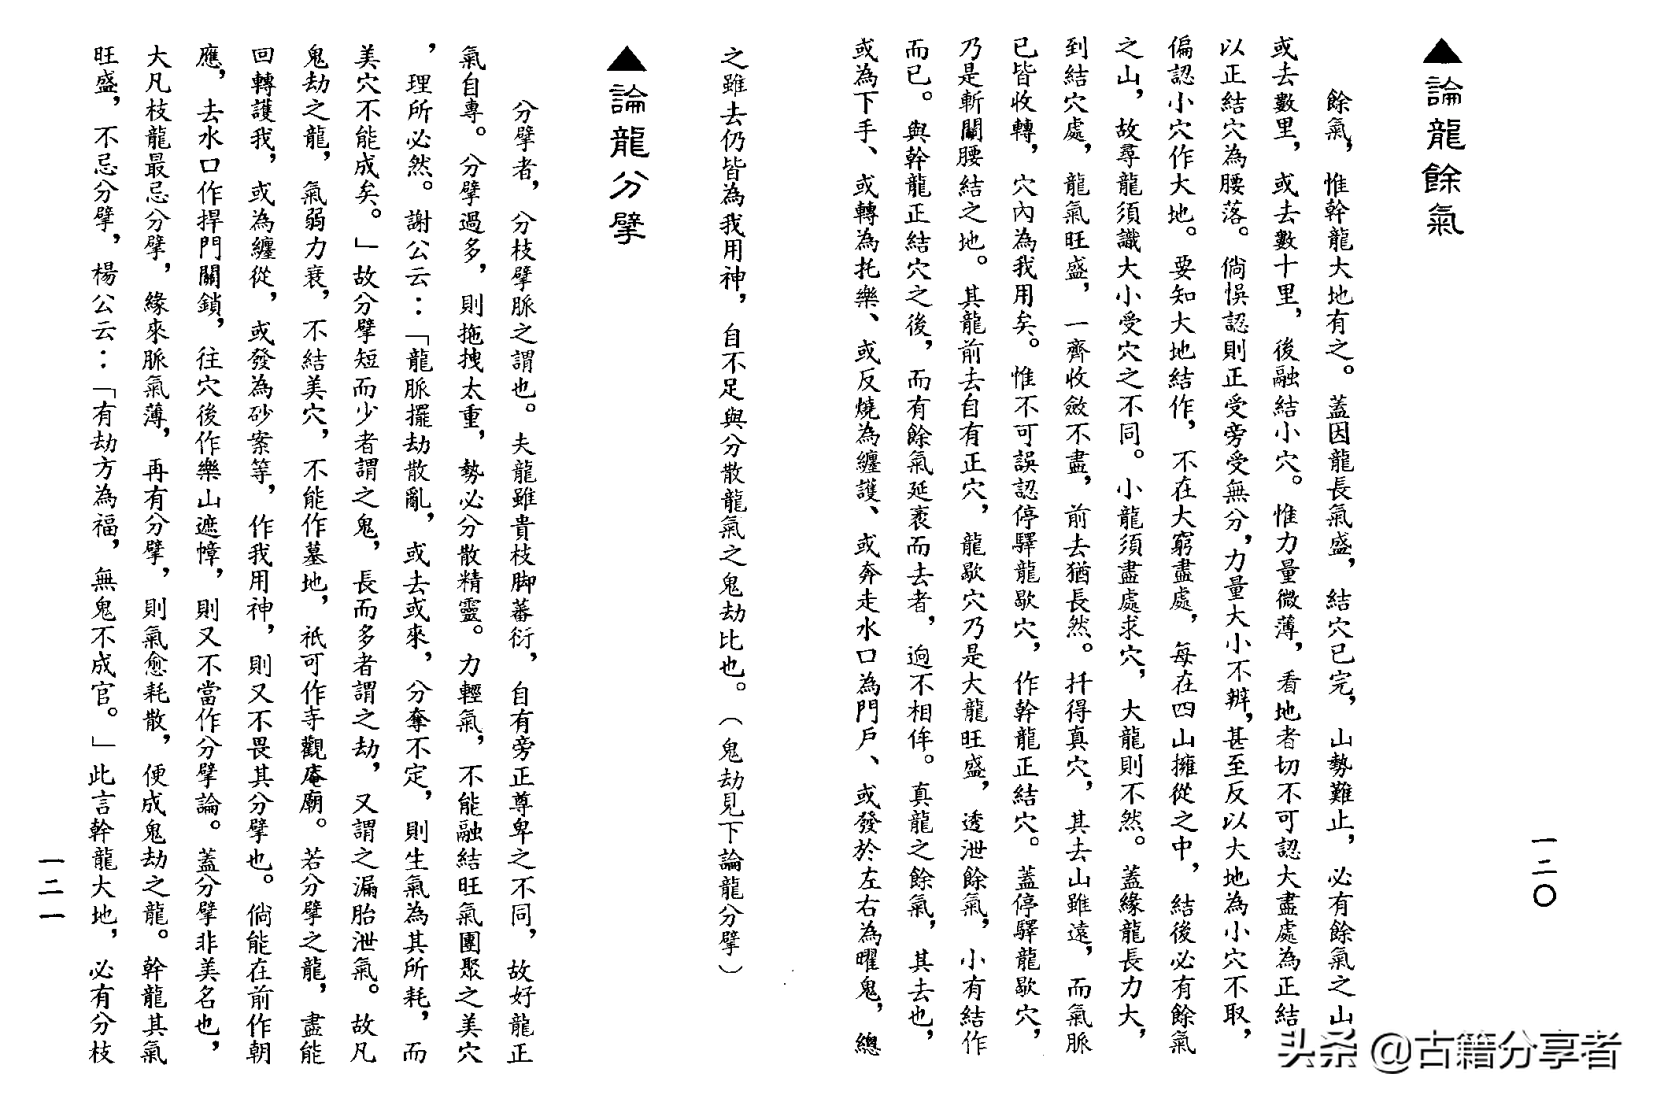 ▲論龍餘氣
餘氣，惟幹龍大地有之。蓋因龍長氣盛，結穴已完，山勢難止，必有餘氣之山
或去數里，或去數十里，後融結小穴。惟力量微薄，看地者切不可認大盡處為正結
以正結穴為腰落。倘悞認則正受旁受無分，力量大小不辨，甚至反以大地為小穴不取，
偏認小穴作大地。要知大地結作，不在大窮盡處，每在四山擁從之中，結後必有餘氣
之山，故尋龍須識大小受穴之不同。小龍須盡處求穴，大龍則不然。蓋緣龍長力大，
到結穴處，龍氣旺盛，一齊收斂不盡，前去猶長然。扦得真穴，其去山雖遠，而氣脈
已皆收轉，穴內為我用矣。惟不可誤認停驛龍歇穴，作幹龍正結穴。蓋停驛龍歇穴，
乃是斬關腰結之地。其龍前去自有正穴，龍歇穴乃是大龍旺盛，透泄餘氣，小有結作
而已。與幹龍正結穴之後，而有餘氣延袤而去者，逈不相侔。真龍之餘氣，其去也，
或為下手、或轉為托樂、或反燒為纏護、或奔走水口為門戶、或發於左右為曜鬼，總
之雖去仍皆為我用神，自不足與分散龍氣之鬼劫比也。（鬼劫見下論龍分擘）
一二〇
▲論龍分擘
分擘者，分枝擘脈之謂也。夫龍雖貴枝脚蕃衍，自有旁正尊卑之不同，故好龍正
氣自專。分擘過多，則拖拽太重，勢必分散精靈。力輕氣，不能融結旺氣團聚之美穴
，理所必然。謝公云：「龍脈擺劫散亂，或去或來，分奪不定，則生氣為其所耗，而
美穴不能成矣。」故分擘短而少者謂之鬼，長而多者謂之劫，又謂之漏胎泄氣。故凡
鬼劫之龍，氣弱力衰，不結美穴，不能作墓地，祇可作寺觀庵廟。若分擘之龍，盡能
回轉護我，或為纏從，或發為砂案等，作我用神，則又不畏其分擘也。倘能在前作朝
應，去水口作捍門關鎖，往穴後作樂山遮幛，則又不當作分擘論。蓋分擘非美名也，
大凡枝龍最忌分擘，緣來脈氣薄，再有分擘，則氣愈耗散，便成鬼劫之龍。幹龍其氣
旺盛，不忌分擘，楊公云：「有劫方為福，無鬼不成官。」此言幹龍大地，必有分枝
一二一
头条 @古籍分享者